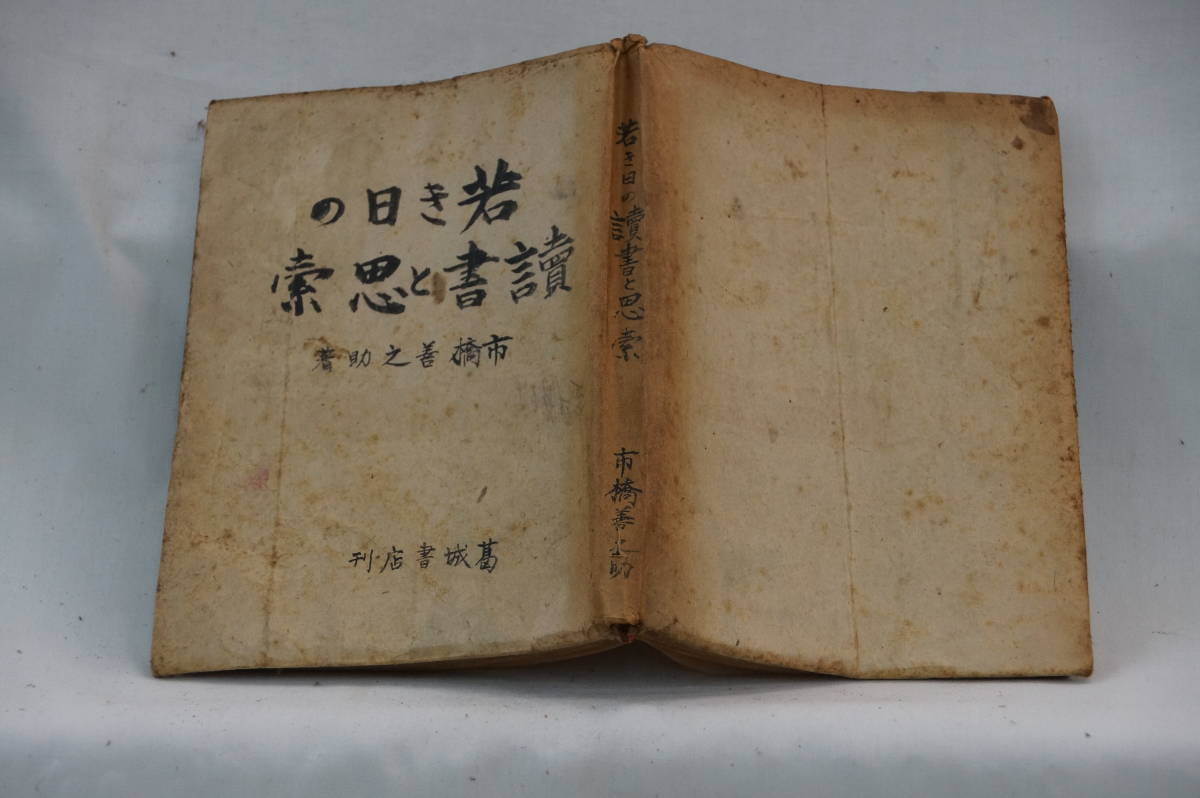 若き日の
讀書と思索
市橋善之助著
葛城書店・刊
若き日の讀書と思索
市橋善之助